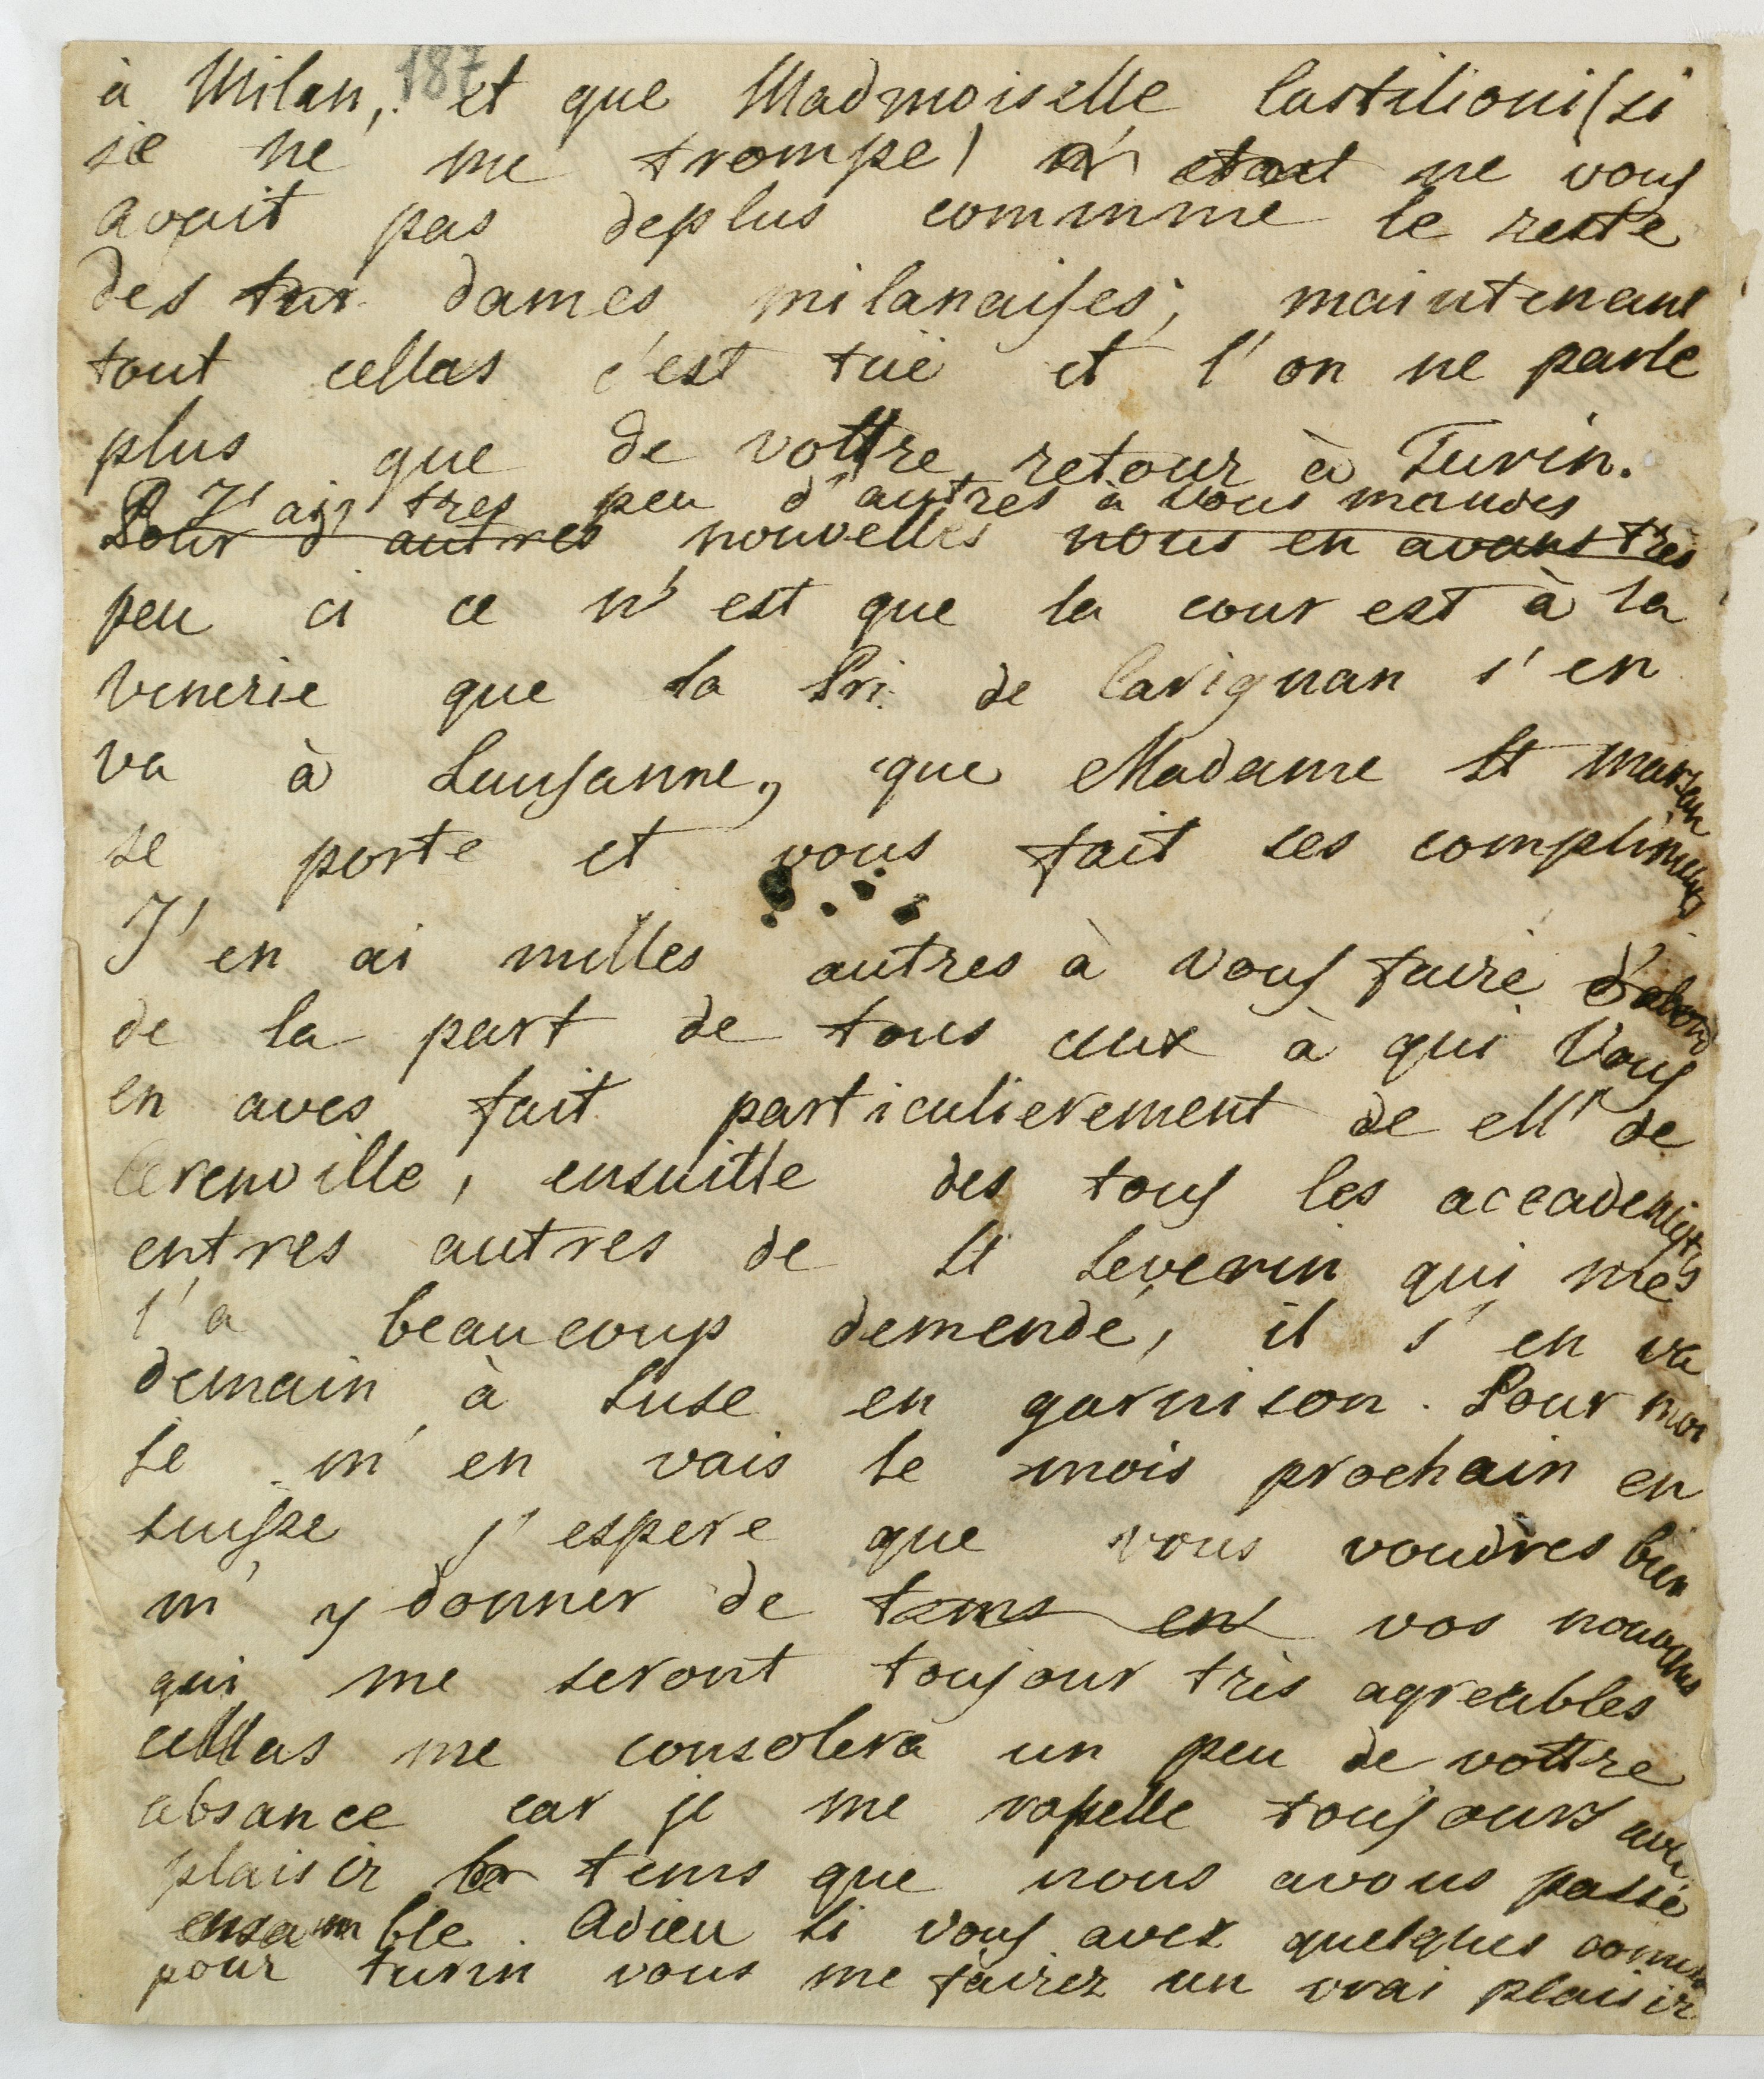 187
à Milan, et que Madmoiselle Castilioni (si
je ne me trompe) ne vous
avait pas deplus commme le reste
des dames milanaises; maintenant
tout cellas c'est tué et l'on ne parle
plus que de vottre retour à Turin.
J'ais tres peu d'autres à vous mandes
Pour d'autres nouvelles nous en avons très
peu ci ce n'est que la cour est à la
Venerie que la Pri. de Carignan s'en
va à Lausanne, que Madame St Marsan
se porte et vous fait ses compliments
J'en ai milles autres à vous faire d'abord
de la part de tous ceux à qui vous
en aves fait particulierement de Mr de
Cerenville, ensuitte des tous les accademistes
entres autres de St Severin qui me
l'a beaucoup demendé, il s'en va
demain à Suse en garnison. Pour moi
Je m'en vais le mois prochain en
suisse j'espere que vous voudres bien
m'y donner de tems en vos nouvelles
qui me seront toujour très agreables
cellas me consolera un peu de vottre
absance car je me rapelle toujours avec
plaisir le tems que nous avons passé
ensamble. Adieu si vous avez quelques
pour turin vous me fairez un vrai plaisir